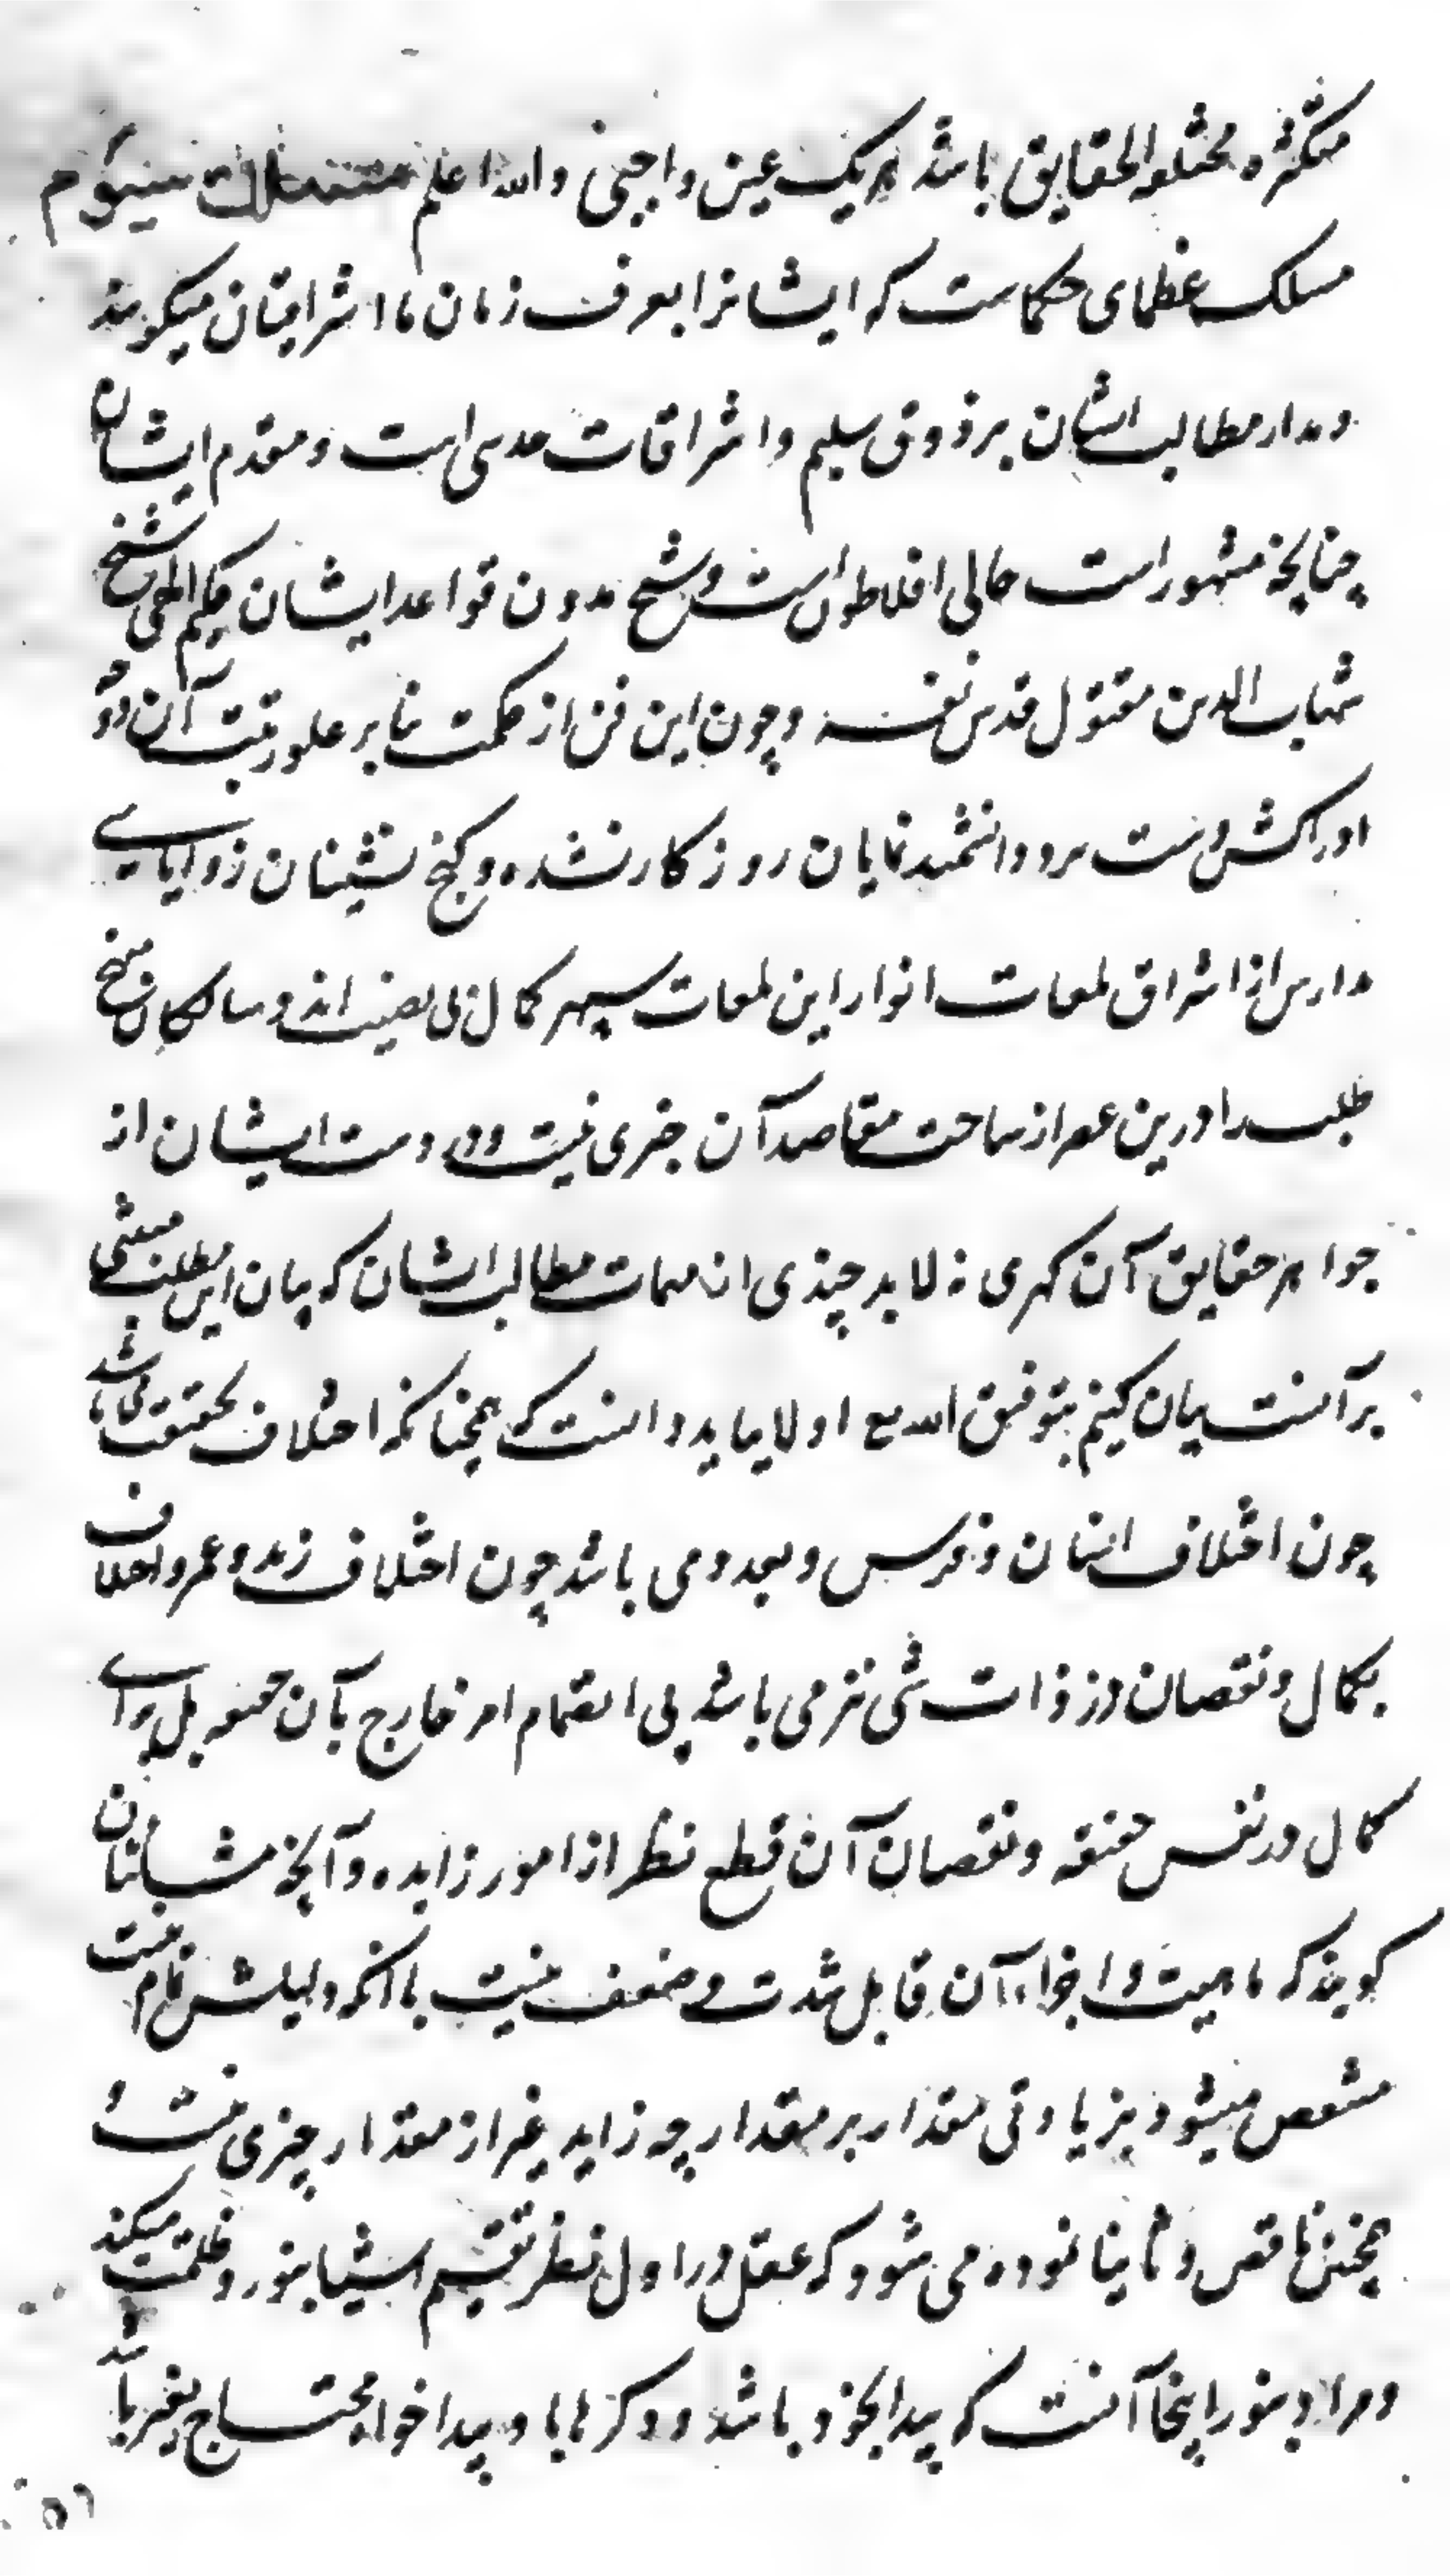 متکثره مختلفه الحقایق باشد هریک عین واجبی والله اعلم مسلک سیوم
مسلک عظمای حکماست که ایشانرا بعرف زمان ما اشراقیان میکویند
و مدار مطالب ایشان بر ذوق سلیم و اشراقات حدسی است و مقدم ایشان
چنانچه مشهور است حالی افلاطون است و شیخ مدون قواعد ایشان حکیم الهی شیخ
شهاب الدین مقتول قدس نفسه و چون این فن از حکمت بنا بر علو رتبت آن و دو
ادراکش دست برد دانشمند نمایان روزکار نشده و کنج نشینان زوایای
مدارس از اشراق لمعات انوار این لمعات سپهر کمال بی نصیب اند و سالکان منهج
طلب را درین عصر از ساحت مقاصد آن خبری نیست و در دست ایشان از
جواهر حقایق آن کهری نه لابد چیزی از مهمات مطالب ایشان که بیان این مطلب مبتنی
بر آنست بیان کنیم بتوفیق الله تع اولا بباید دانست که همچنانکه اختلاف بحقیقت می باشد
چون اختلاف انسان و فرس و بعدد می باشد چون اختلاف زید و عمرو اختلاف
بکمال و نقصان در ذات شی نیز می باشد بی انضمام امر خارج بآن حقیقه بل برای
کمال در نفس حقیقه و نقصان آن قطع نظر از امور زایده و آنچه مشائیان
کویند که ماهیت و اجزاء آن قابل شدت و ضعف نیست با آنکه دلیلش تمام نیست
منتقض میشود بزیادتی مقدار بر مقدار چه زاید غیر از مقدار چیزی نیست و
همچنین ناقص و ثانیا نموده می شود که عقل در اول نظر تقسیم اشیا بنور و ظلمت میکند
و مراد بنور اینجا آنست که پیدا بخود باشد و دکرها باو پیدا خواه محتاج بغیر باشد